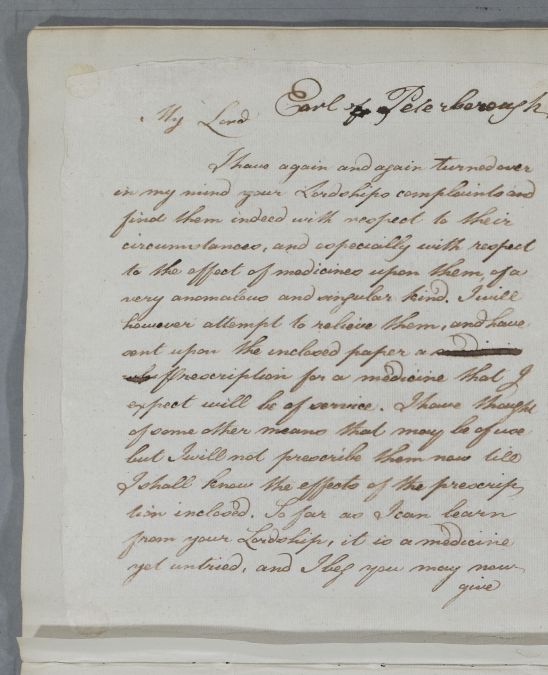 Earl of Peterborough
My Lord
I have again and again turned over
in my mind your Lordships complaints and
find them indeed with respect to their
circumstances, and especially with respect
to the effect of medicines upon them, of a
very anomalous and singular kind. I will
however attempt to relieve them, and have
sent upon the inclosed paper a
Prescription for a medicine that I
expect will be of service. I have thought
of some other means that may be of use
but I will not prescribe them now till
I shall know the effects of the prescrip
tion inclosed. So far as I can learn
from your Lordship, it is a medicine
yet untried, and I beg you may now
give